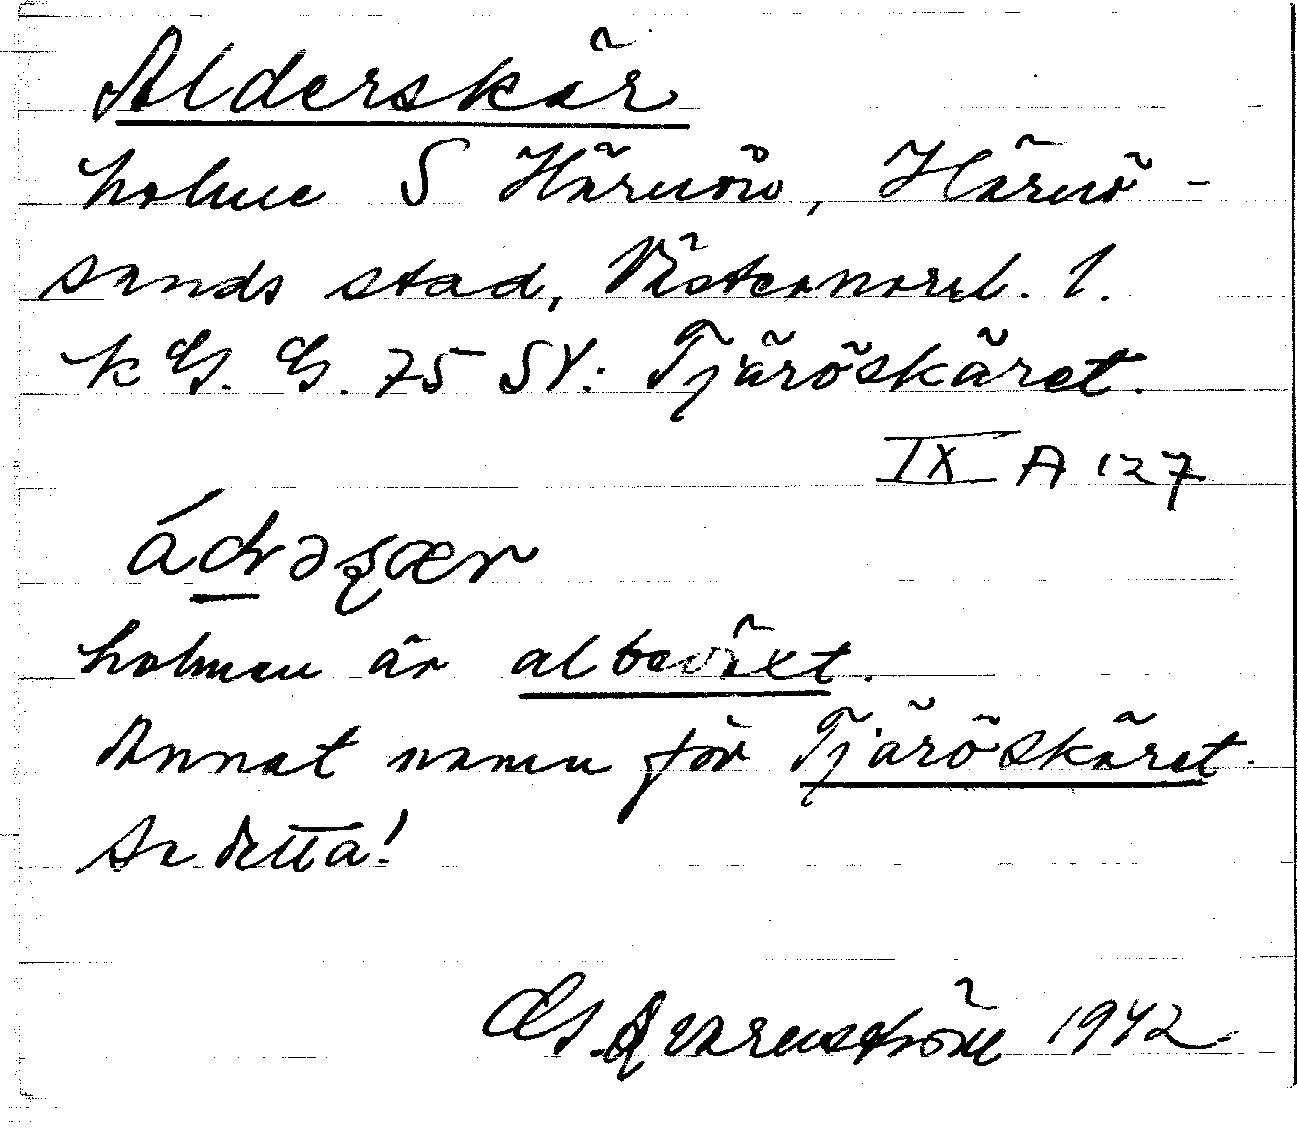 Alderskär
holme S Härnön, Härnö-
sands stad, Västernorrl. l.
k G. G. 75 SV: Tjäröskäret.
IX A 127
holmen är albeväxt.
Annat namn för Tjäröskäret.
Se detta!
G. Qvarnström 1942